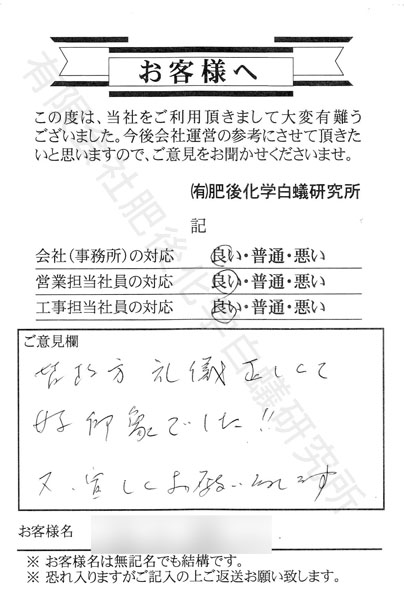 お客様へ
この度は、当社をご利用頂きまして大変有難う
ございました。今後会社運営の参考にさせて頂きた
いと思いますので、ご意見をお聞かせくださいませ。
㈲肥後化学白蟻研究所
記
会社(事務所)の対応 良い・普通・悪い
営業担当社員の対応 良い・普通・悪い
工事担当社員の対応 良い・普通・悪い
ご意見欄
皆さん方 礼儀正しくて
好印象でした!!
又、宜しくお願いします
お客様名
※ お客様名は無記名でも結構です。
※ 恐れ入りますがご記入の上ご返送お願い致します。
有限会社肥後化学白蟻研究所